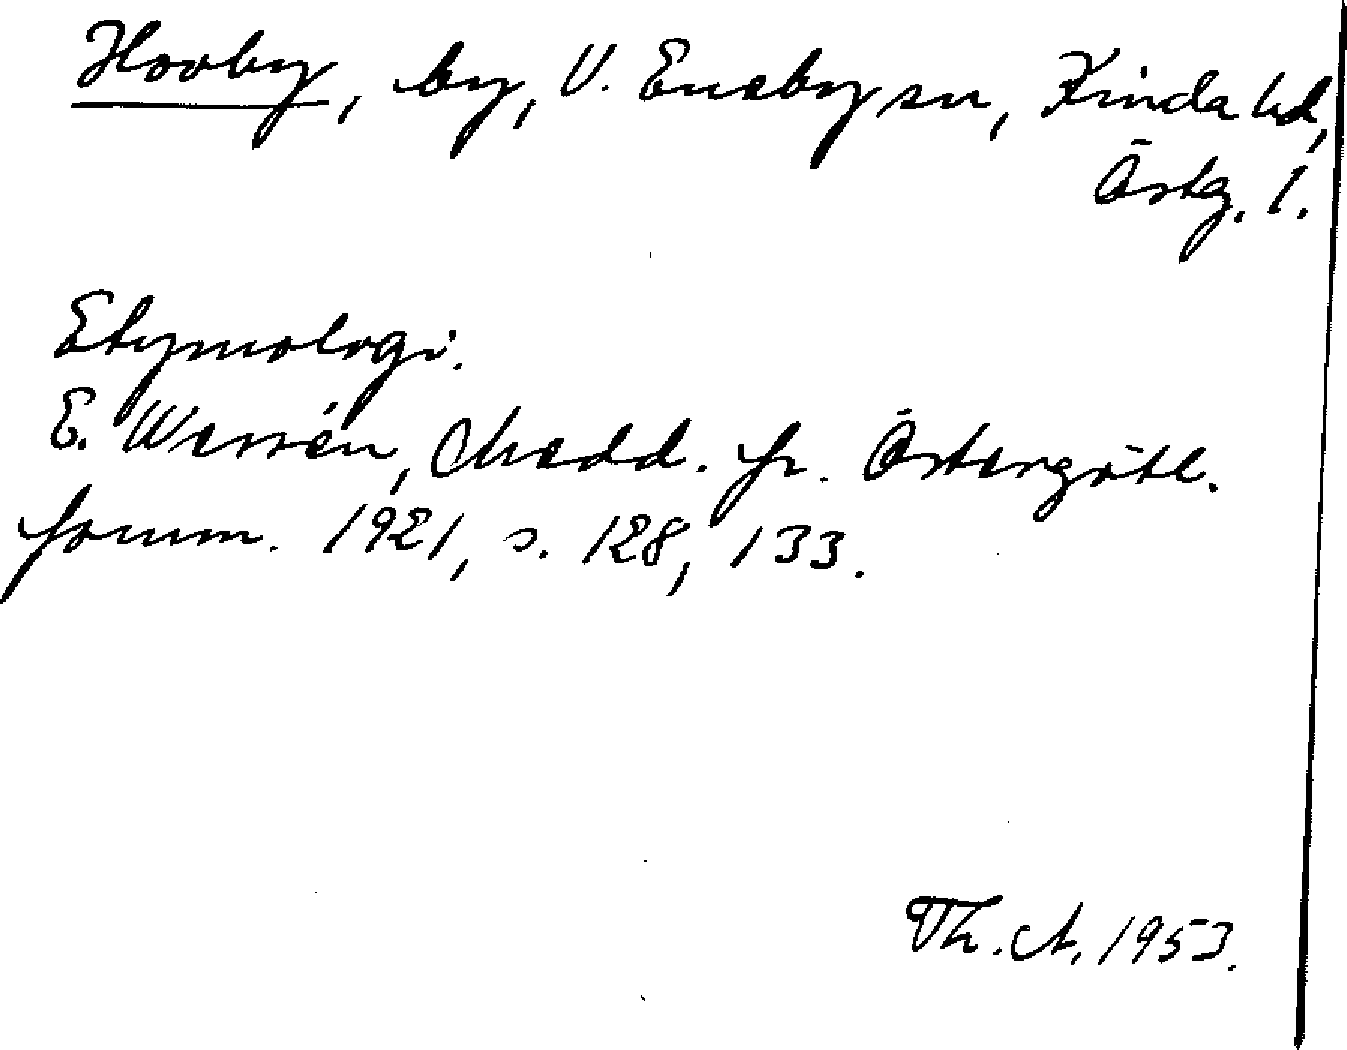 Hovby, by, V. Eneby sn, Kinda hd,
Östg. l.
Etymologi.
E. Wessén, Medd. fr. Östergötl.
fornm. 1921, s. 128, 133.
Th. A. 1953.